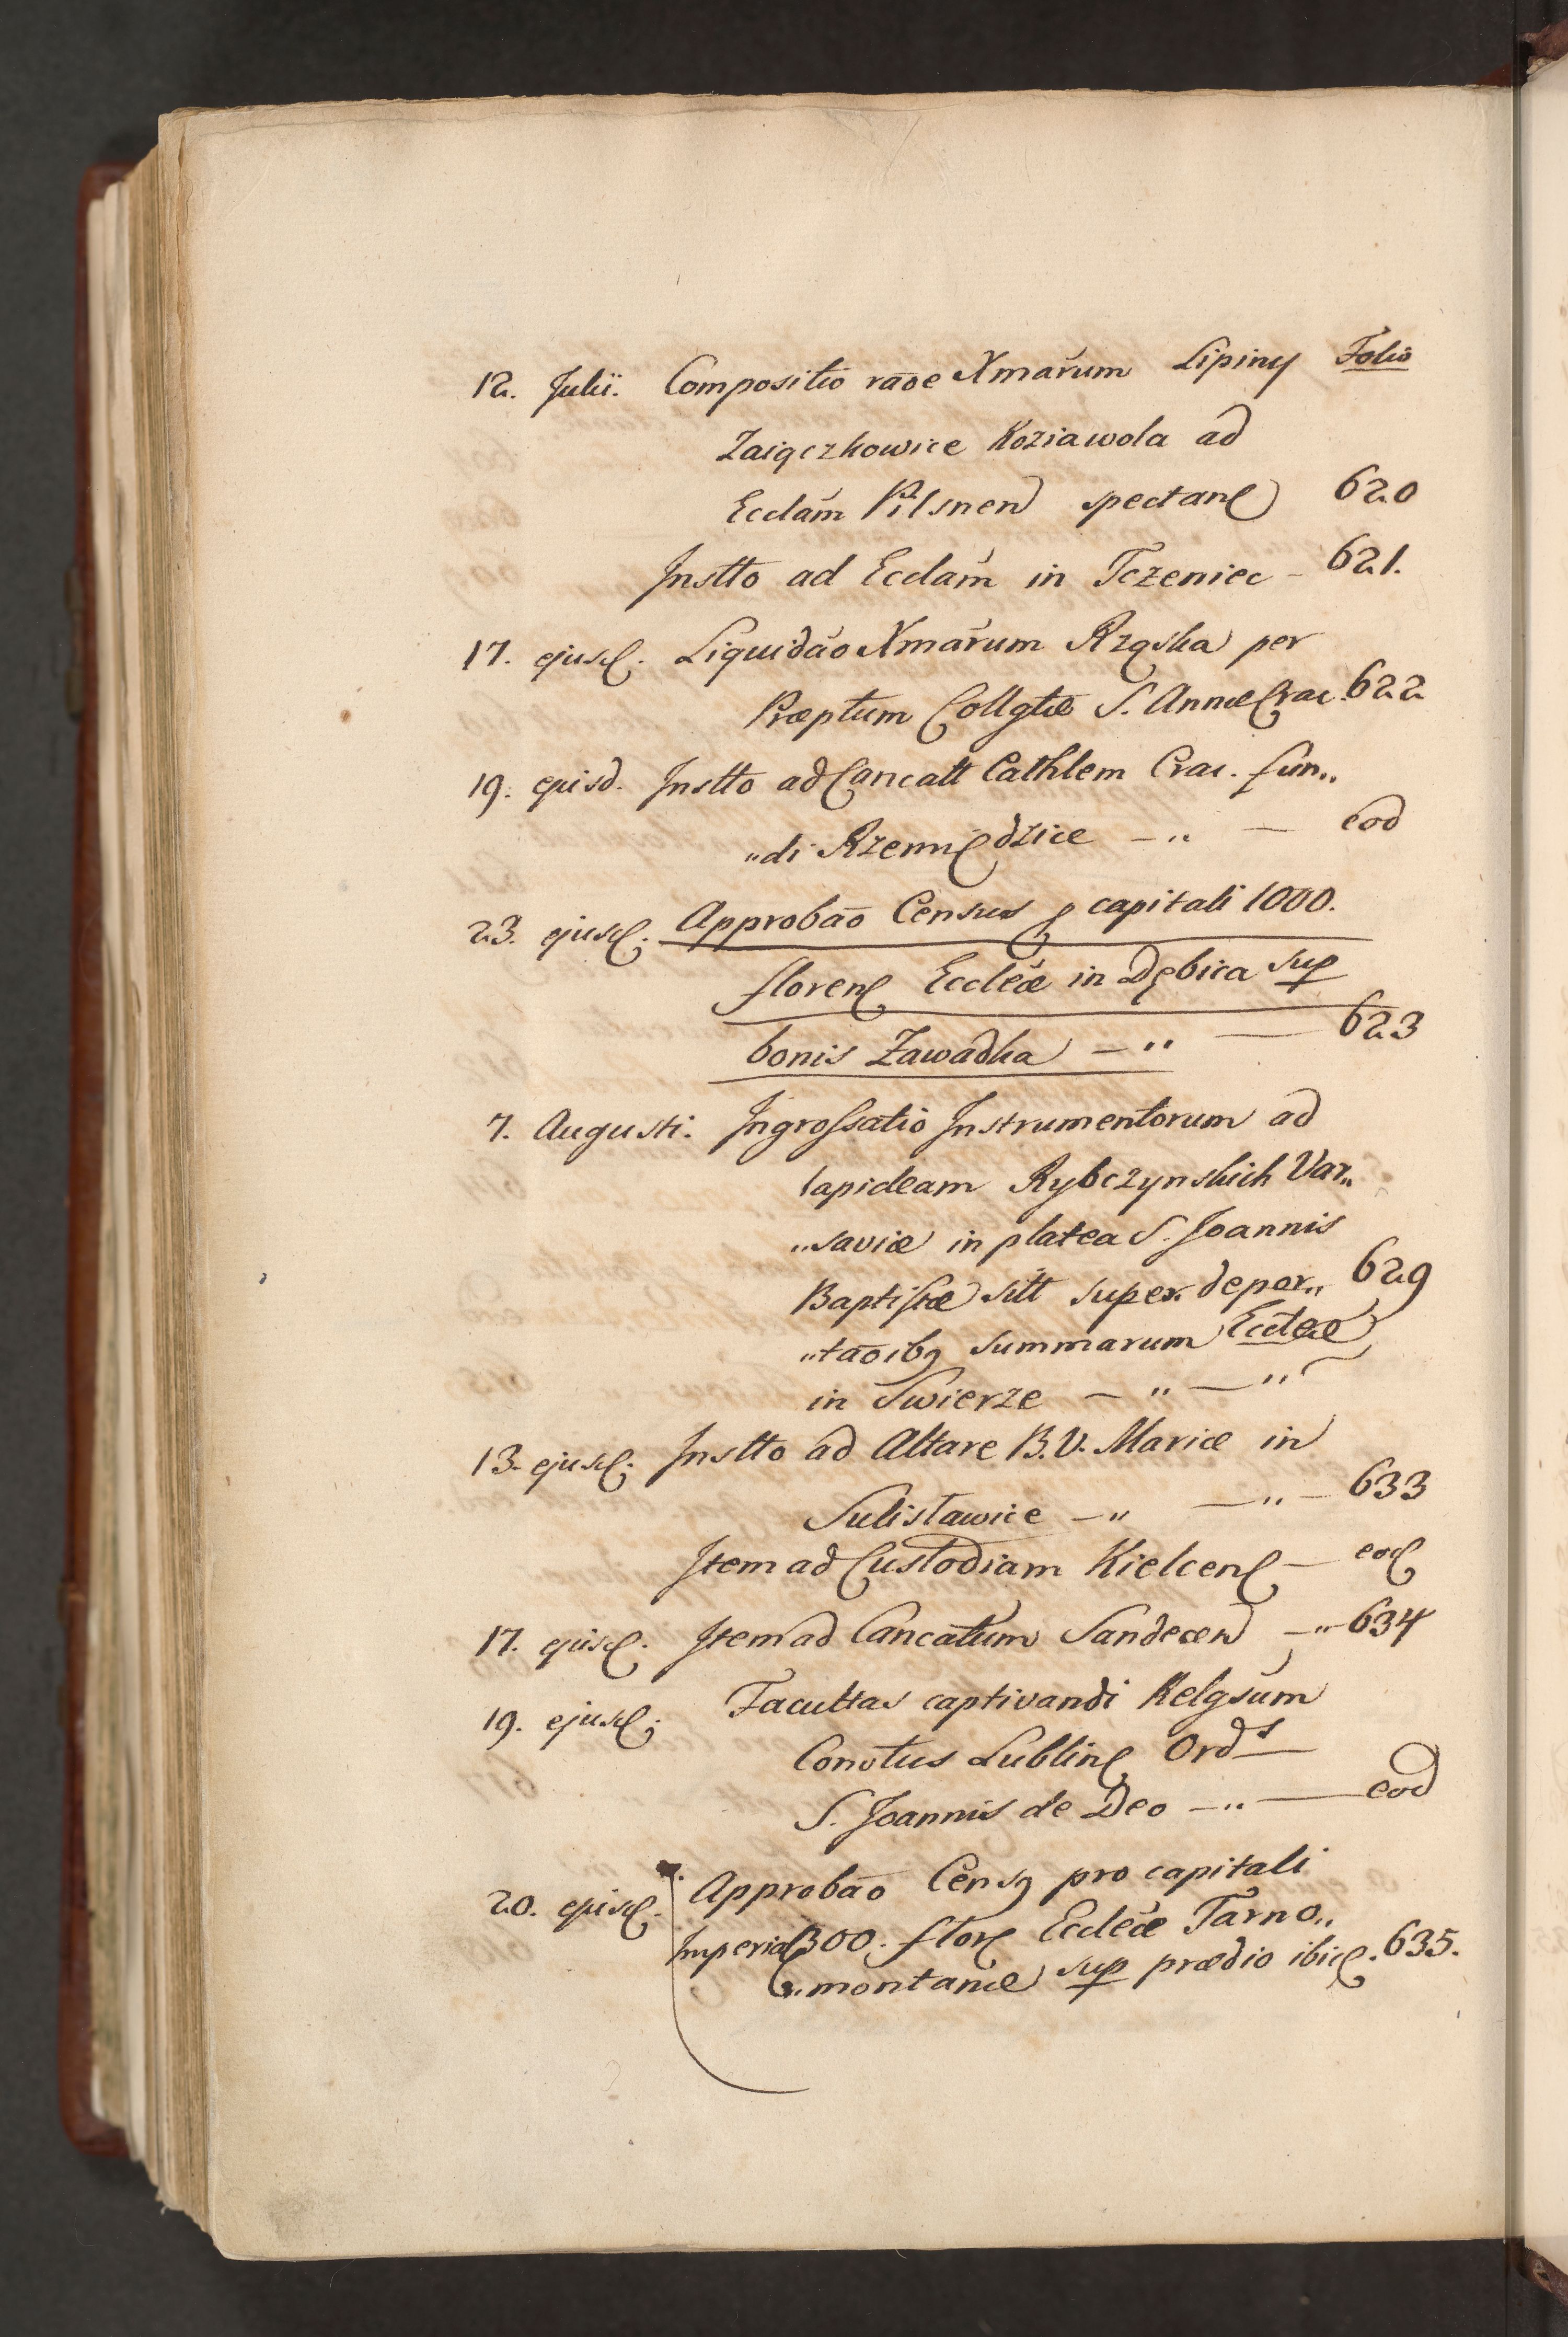 12. Julii. Compositio raõe Xmarum Lipiny Folio
Zaiączkowice Koziawola ad
Ecclam Pilsnen spectan 620
Instto ad Ecclam in Tczeniec - 621.
17. ejusd. Liquidão Xmarum Rząska per
Præptum Collgtæ S. Annæ Crac. 622
19. ejusd. Instto ad Cancatt Cathlem Crac. fun„
„di Rzemiędzice — „ — eod
23. ejusd. Approbão Census p capitali 1000.
floren Eccleæ in Dębica sup
bonis Zawadka — „ — 623
7. Augusti. Ingrossatio Instrumentorum ad
lapideam Rybczynskich Var„
„saviæ in platea S. Joannis
Baptistæ sitt super depor„ 629
„taõibq summarum Eccleæ
in Swierze — „ — „
13. ejusd. Instto ad Altare B.V. Mariæ in
Sulisławice — „ — „ — 633
Item ad Custodiam Kielcen — eod
17. ejusd. Item ad Cancatum Sandecen — „ — 634
19. ejusd. Facultas captivandi Relgsum
Convtus Lublin Ord s
S. Joannis de Deo — „ — eod
20. ejusd. Approbão Censq pro capitali
Imperial 300. flor Eccleæ Tarno„
„montanæ sup prædio ibid. 635.